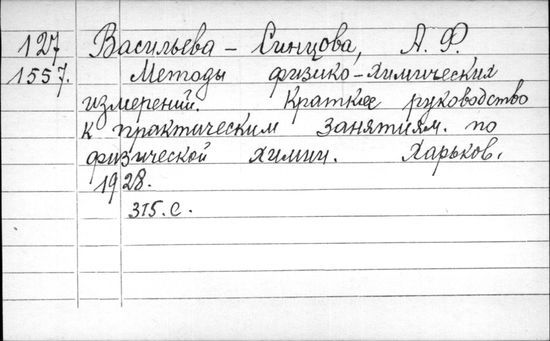 127 Васильева - Синцова, А. Ф.
1557. Методы физико-химических
измерений. Краткое руководство
к практическим занятиям. по
физической химии. Харьков,
1928.
315. с.